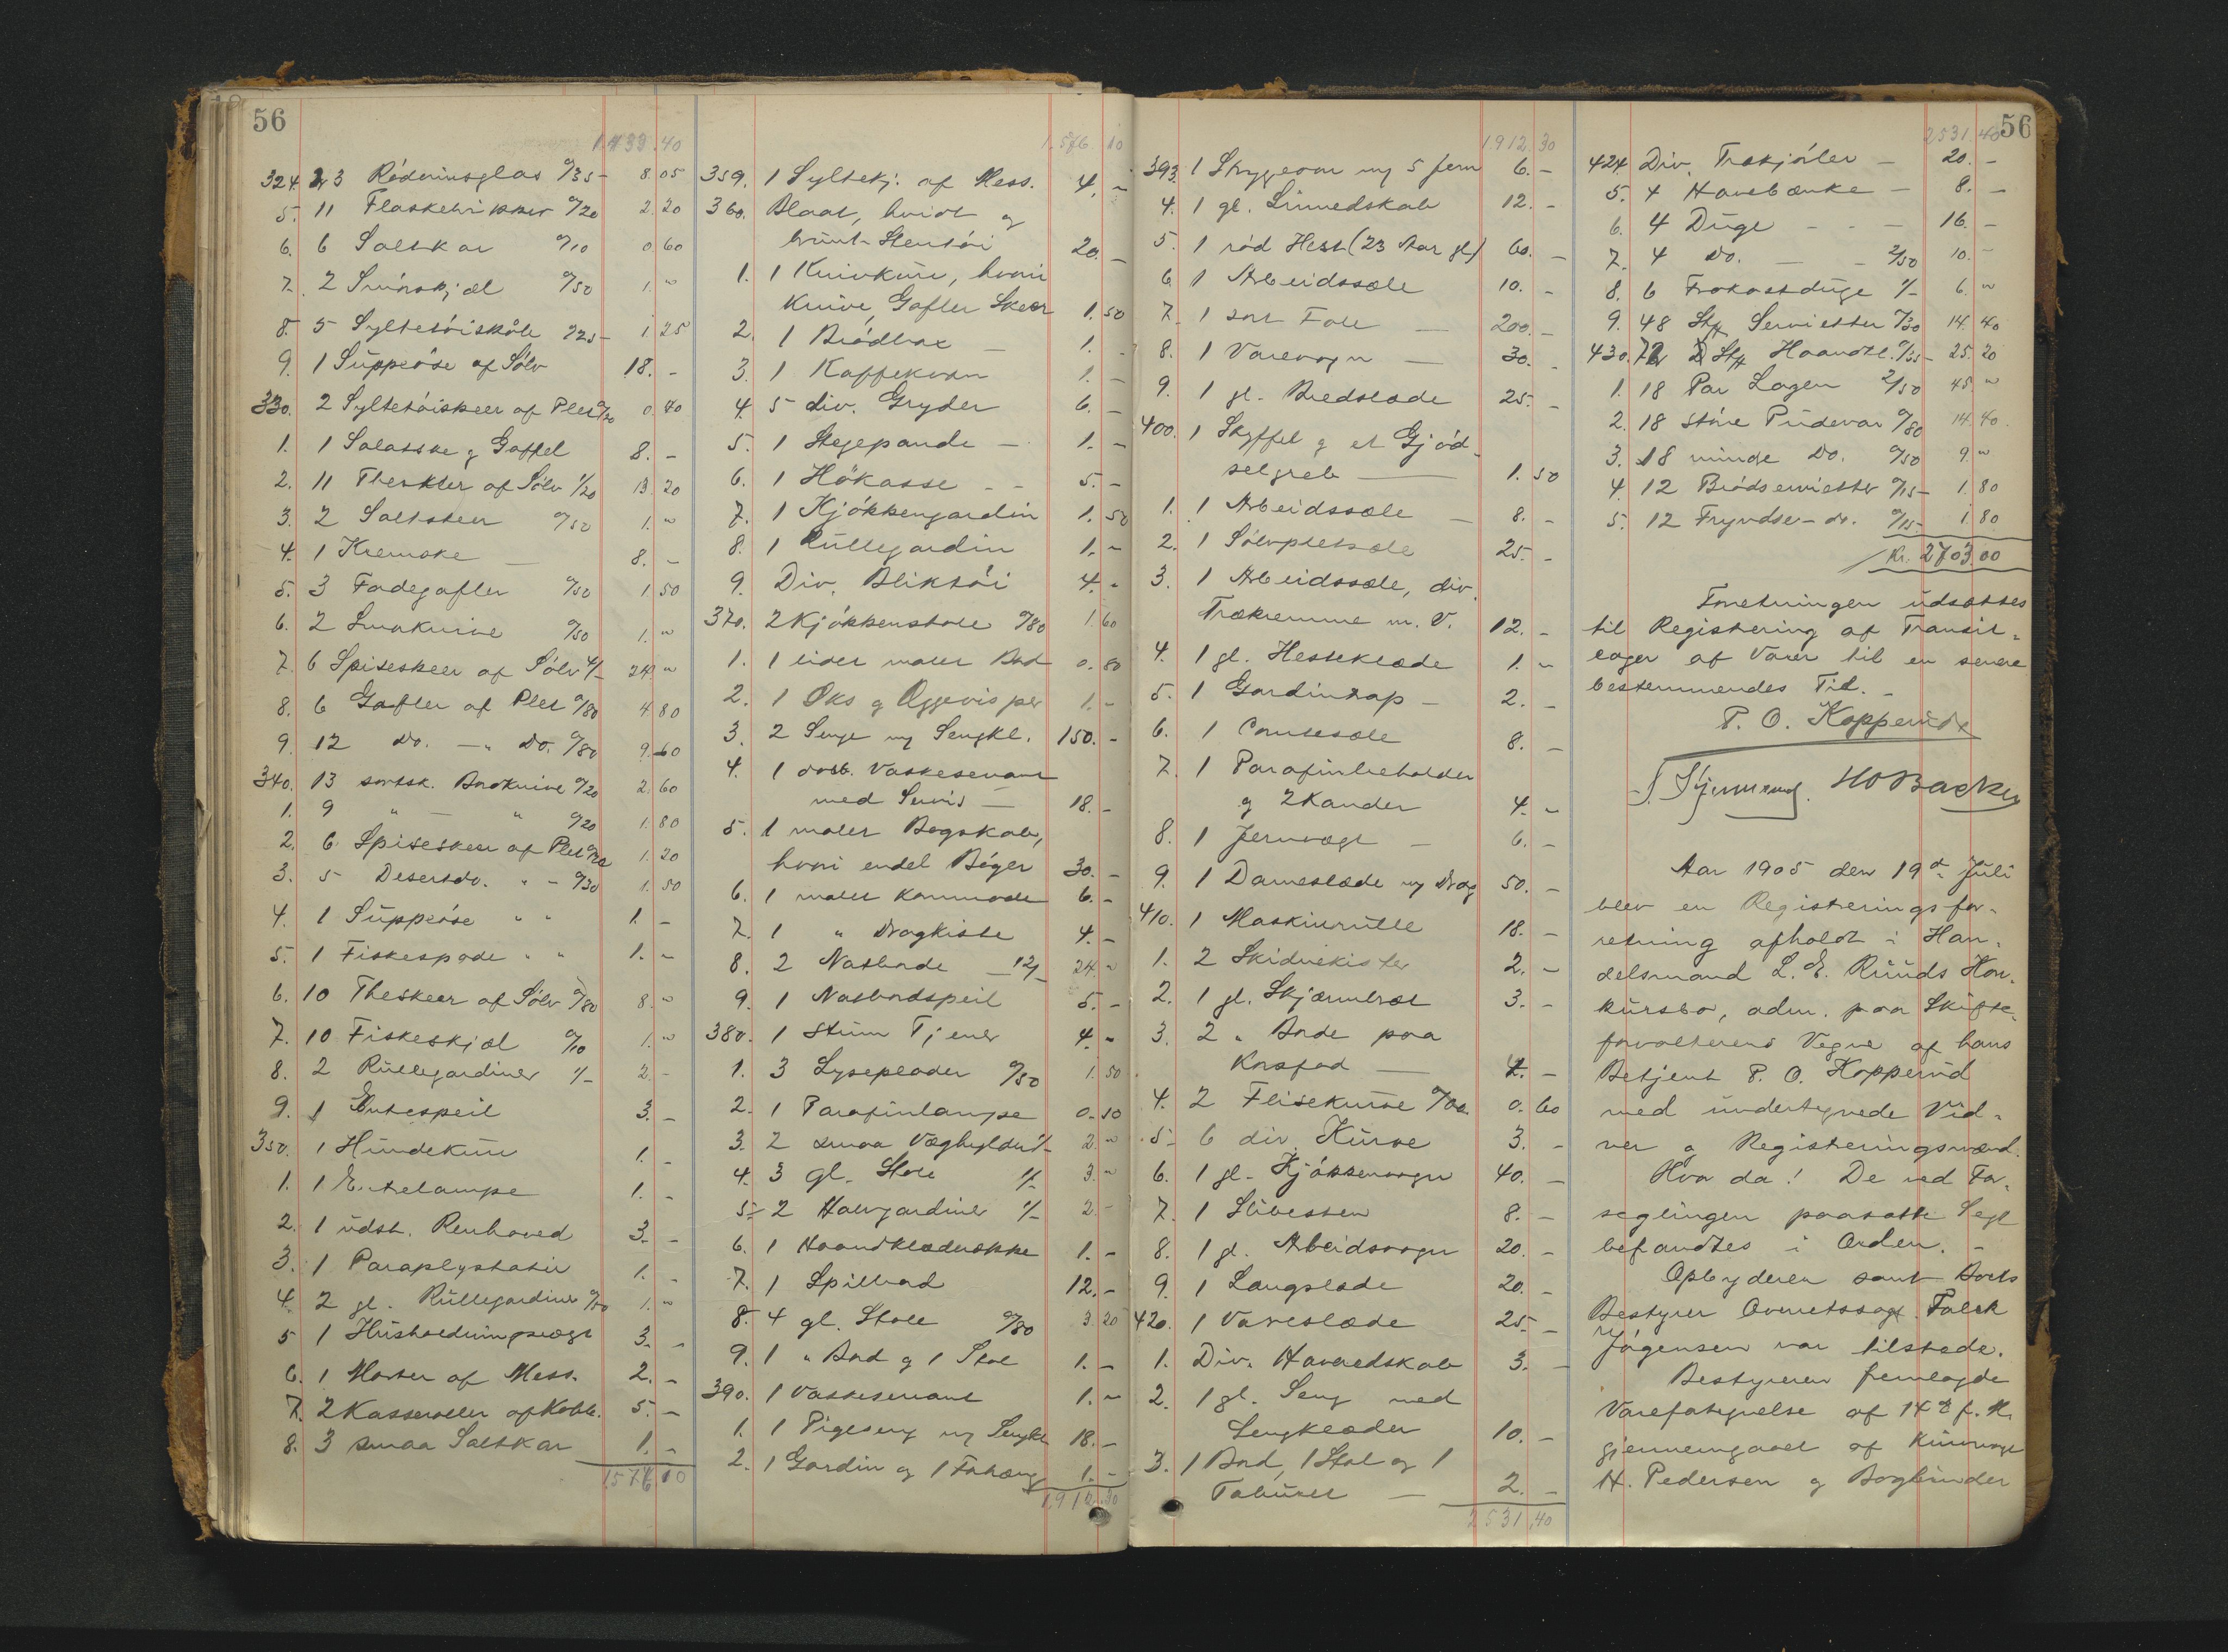 56
1433.40
324. 23 Rödvinsglas 0/35 8.05
5. 11 Flaskebrikker 0/20 2.20
6. 6 Saltkar 0/10 0.60
7. 2 Smörskjæl 0/50 1. "
8. 5 Syltetöiskåle 0/25 1.25
9. 1 Suppeöse af Sölv 18. -
330. 2 Syltetöiskeer af Plet 0/20 0.40
1. 1 Salatske & Gaffel 8. -
2. 11 Theskeer af Sölv 1/20 13.20
3. 2 Saltskeer 0/50 1. "
4. 1 Kremske 8. -
5. 3 Fadegafler 0/50 1.50
6. 2 Smørknive 0/50 1. "
7. 6 Spiseskeer af Sölv 4/- 24. "
8. 6 Gafler af Plet 0/80 4.80
9. 12 do. - " do. 0/80 9.60
340. 13 sortsk. Bordknive 0/20 2.60
1. 9 " - " 0/20 1.80
2. 6 Spiseskeer af Plet 0/20 1.20
3. 5 Desertdo. " - 0/30 1.50
4. 1 Suppeöse " " 1. -
5. 1 Fiskespade " " 1. -
6. 10 Theskeer af Sölv 0/80 8. "
7. 10 Fiskeskjæl 0/10 1. "
8. 2 Rullegardiner 1/- 2. -
9. 1 Entespeil 3. -
350. 1 Hundekurv 1. -
1. 1 Entrelampe 1. -
2. 1 udst. Renhoved 3. -
3. 1 Paraplystativ 1. -
4. 2 gl. Rullegardiner 0/50 1. "
5 1 Husholdningsvægt 3. -
6. 1 Morter af Mess. 2. -
7. 2 Kasseroller af Kobb. 5. -
8. 3 smaa Saltkar 1. -
1576.10
1.576.10
359. 1 Syltekj. af Mess. 4. -
360. Blaat, hvidt og
brunt Stentöi 20. -
1. 1 Knivkurv, hvori
Knive, Gafler Skeer 1.50
2. 1 Brödbox - 1. -
3. 1 Kaffekvrn 1. -
4. 5 div. Gryder 6. -
5. 1 Stegepande - 1. -
6. 1 Hökasse - - 5. -
7. 1 Kjökkengardin 1.50
8. 1 Rullegardin 1. -
9. Div. Bliktöi 4. -
370. 2 Kjökkenstole 0/80 1.60
1. 1 lidet malet Bord 0.80
2. 1 Öks & Æggevisper 1. -
3. 2 Senge m/ Sengkl. 150. -
4. 1 dobb. Vaskeservant
med Servis - 18. -
5. 1 malet Bogskab,
hvori endel Böger 30. -
6. 1 malet Kommode 6. -
7. 1 " Dragkiste 4. -
8. 2 Natborde - 12/- 24. "
9. 1 Natbordspeil 5. -
380. 1 Stum Tjener 4. -
1. 3 Lyseplader 0/50 1.50
2. 1 Parafinlampe 0.10
3. 2 smaa Væghylder 1/- 2. "
4. 3 gl. Stole 1/- 3. "
5. 2 Halvgardiner 1/- 2. -
6. 1 Haandklædrække 1. -
7. 1 Spilbord 12. -
8. 4 gl. Stole 0/80 3.20
9. 1 " Bord & 1 Stol 1. -
390. 1 Vaskeservant 1. -
1. 1 Pigeseng m/ Sengkl 18. -
2. 1 Gardin og 1 Forhæng 1. -
1.912.30
56
1912.30
393. 1 Strygeovn m/ 5 jern 6. -
4. 1 gl. Linnedskab 12. -
5. 1 röd Hest (23 Aar gl) 60. -
6. 1 Arbeidssele 10. -
7. 1 sort Fole - 200. -
8. 1 Varevogn - 30. -
9. 1 gl. Bredslæde 25. -
400. 1 Skyffel & et Gjöd-
selgreb - 1.50
1. 1 Arbeidssele - 8. -
2. 1 Sölvpletsæle 25. -
3. 1 Arbeidssele, div.
Trækremme m. V. 12. -
4. 1 gl. Hesteklæde 1. -
5. 1 Gardintrap - 2. -
6. 1 8. -
7. 1 Parafinbeholder
& 2 Kander 4. -
8. 1 Jernvægt - 6. -
9. 1 Dameslæde m/ Drag 50. -
410. 1 Maskinrulle 18. -
1. 2 Skidnekister 2. -
2. 1 gl. Skjærmbræt 3. -
3. 2 " Borde paa
Korsfod - 4. -
4. 2 Flisekurve 0/30 0.60
5. 6 div. Kurve 3. -
6. 1 gl. Kjökkenvogn 40. -
7. 1 Slibesten 8. -
8. 1 gl. Arbeidsvogn 20. -
9. 1 Langslæde 20. -
420. 1 Vareslæde 25. -
1. Div. Haveredskab 3. -
2. 1 gl. Seng med
Sengklæder 10. -
3. 1 Bord, 1 Stol og 1
Taburet - 2. -
2531.40
2531.40
424. Div. Trekjöler - 20. -
5. 4 Havebænke - 8. -
6. 4 Duge - - - 16. -
7. 4 do. - - 2/50 10. -
8. 6 Frokostduge 1/- 6. "
9. 48 Stk Servietter 0/30 14.40
430. 72 Stk Haandkl. 0/35 25.20
1. 18 Par Lagen 2/50 45 "
2. 18 störe Pudevar 0/80 14.40.
3. 18 mindre Do. 0/50 9. "
4. 12 Brödservietter 0/15 1.80
5. 12 Fryndse- do. 0/15 1.80
Kr. 2703.00
Forretningen udsættes
til Registrering af Transit-
lager af Varer til en senere
bestemmendes Tid. -
P. O. Kopperud
HO Backer
Aar 1905 den 19de Juli
blev en Registreringsfor-
retning afholdt i Han-
delsmand L. E. Ruuds Kon-
kursbo, adm. paa Skifte-
forvalterens Vegne af hans
Betjent P. O. Kopperud
med undertegnede Vid-
ner og Registreringsmænd.
Hvor da! De ved For-
seglingen paasatte Segl
befandtes i Orden. -
Opbyderen samt Boets
Bestyrer Overretssagf. Falck
Jögensen var tilstede.
Bestyreren fremlagde
Varefortegnelse af 14de f. M.
gjennemgaaet af
H. Pedersen og Bogbinder